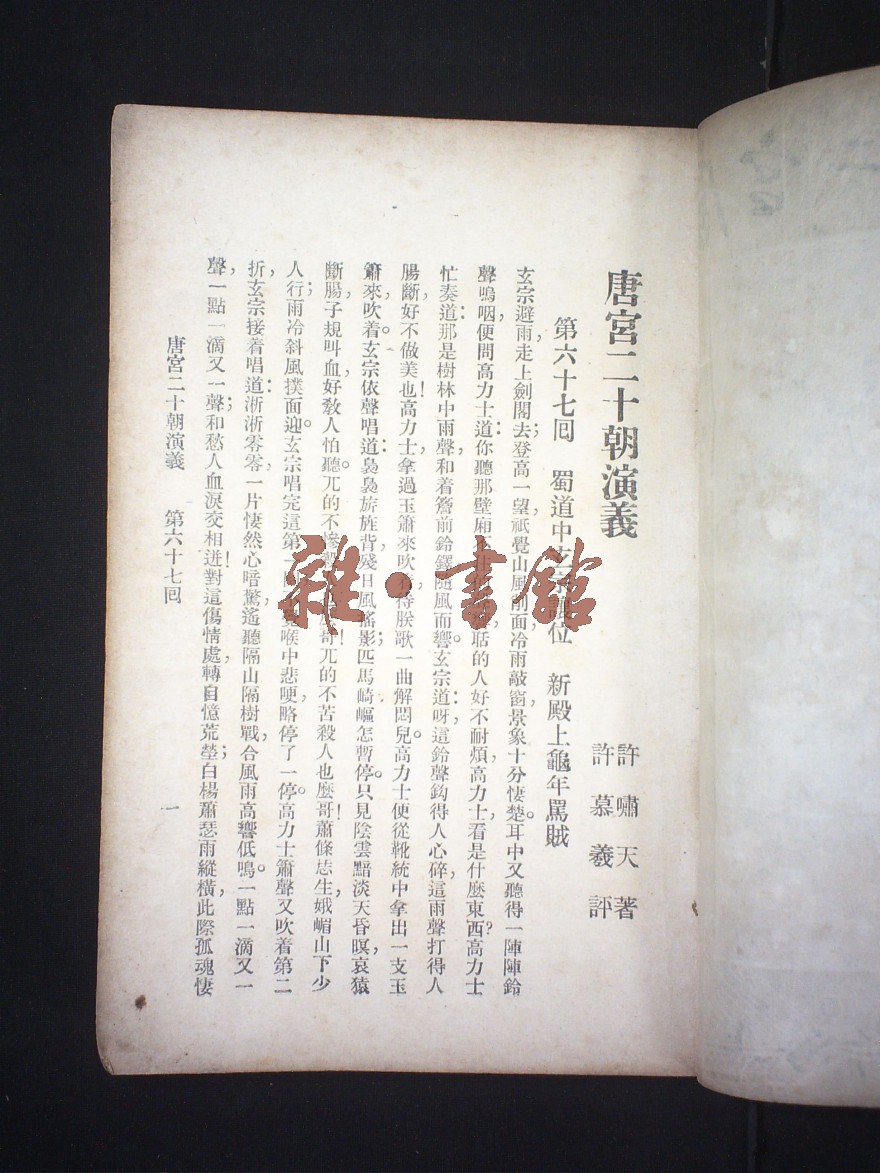 唐宮二十朝演義
許嘯天著
許慕羲評
第六十七回　蜀道中玄宗讓位　新殿上龜年罵賊
玄宗避雨，走上劍閣去；登高一望，祇覺山風削面，冷雨敲窗，景象十分悽楚。耳中又聽得一陣陣鈴
聲嗚咽，便問高力士道：你聽那壁廂聒的人好不耐煩，高力士，看是什麼東西？高力士
忙奏道：那是樹林中雨聲，和着簷前鈴鐸，隨風而響。玄宗道：呀，這鈴聲鈎得人心碎，這雨聲打得人
腸斷，好不做美也！高力士拿過玉簫來吹着，待朕歌一曲解悶兒。高力士便從靴統中拿出一支玉
簫來，吹着。玄宗依聲唱道：裊裊旂旌，背殘日，風搖影；匹馬崎嶇怎暫停。只見陰雲黯淡天昏暝，哀猿
斷腸，子規叫血，好教人怕聽。兀的不慘哥！兀的不苦殺人也麼哥！蕭條恁生，峨嵋山下少
人行；雨冷斜風撲面迎。玄宗唱完這第喉中悲哽，略停了一停。高力士簫聲又吹着第二
折，玄宗接着唱道：淅淅零零，一片悽然心暗驚，遙聽隔山隔樹，戰合風雨，高響低鳴。一點一滴又一
聲，一點一滴又一聲；和愁人血淚交相迸！對這傷情處，轉自憶荒塋；白楊蕭瑟雨縱橫，此際孤魂悽
唐宮二十朝演義　第六十七回
一
雜·書館